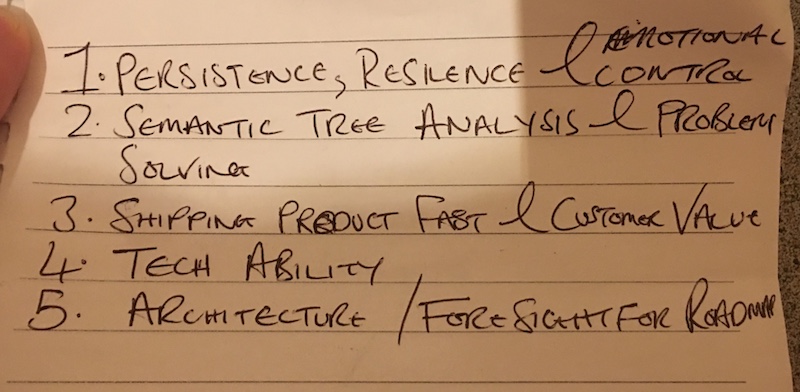 1. PERSISTENCE, RESILENCE & EMOTIONAL CONTROL
2. SEMANTIC TREE ANALYSIS & PROBLEM
SOLVING
3. SHIPPING PRODUCT FAST & CUSTOMER VALUE
4. TECH ABILITY
5. ARCHITECTURE / FORESIGHT FOR ROADMAP